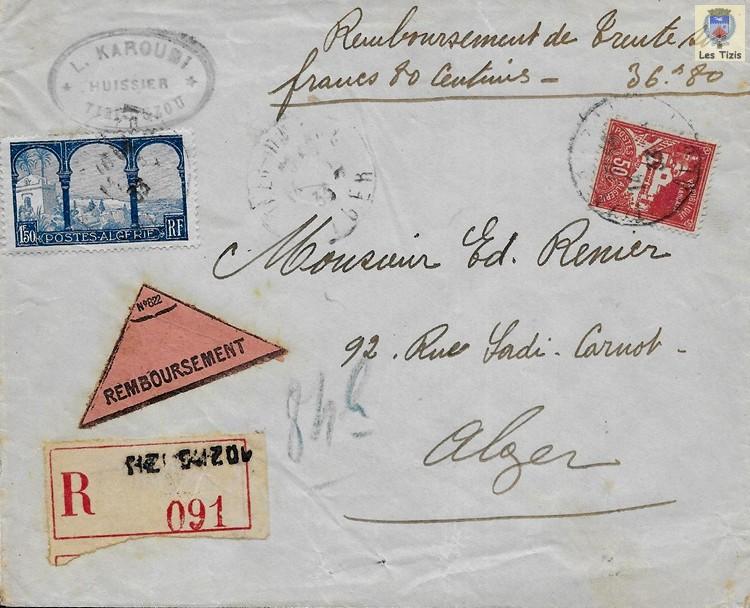 L. KAROUBI
HUISSIER
TIZI-OUZOU
Remboursement de Trente six
francs 80 Centimes - 36.f80
Les Tizis
1F50 POSTES-ALGÉRIE RF
POSTES 50 ALGERIE
REPUBLIQUE FRANÇAISE
ALGER
Monsieur Ed. Renier
92. Rue Sadi-Carnot-
Alger
No 822
REMBOURSEMENT
84
TIZI OUZOU
R
091